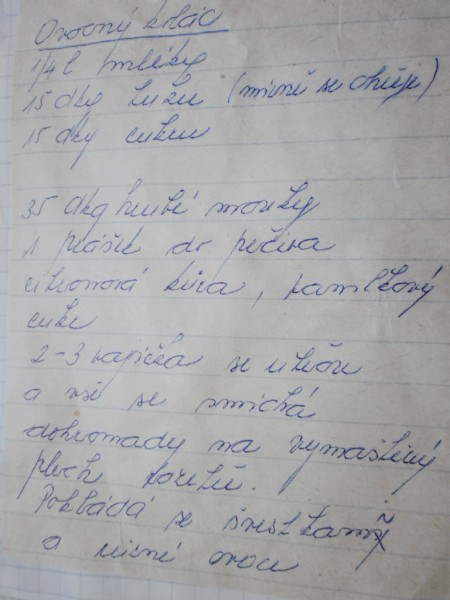 Ovocný koláč
1/4 l mléky
15 dkg tuku (mírně se ohřeje)
15 dkg cukru
35 dkg hrubé mouky
1 prášek do pečiva
citronová kůra, vanilkový
cukr
2-3 vajíčka se utřou
a vše se smíchá
dohromady na vymaštěný
plech
Pokládá se švestkami
a různé ovoce